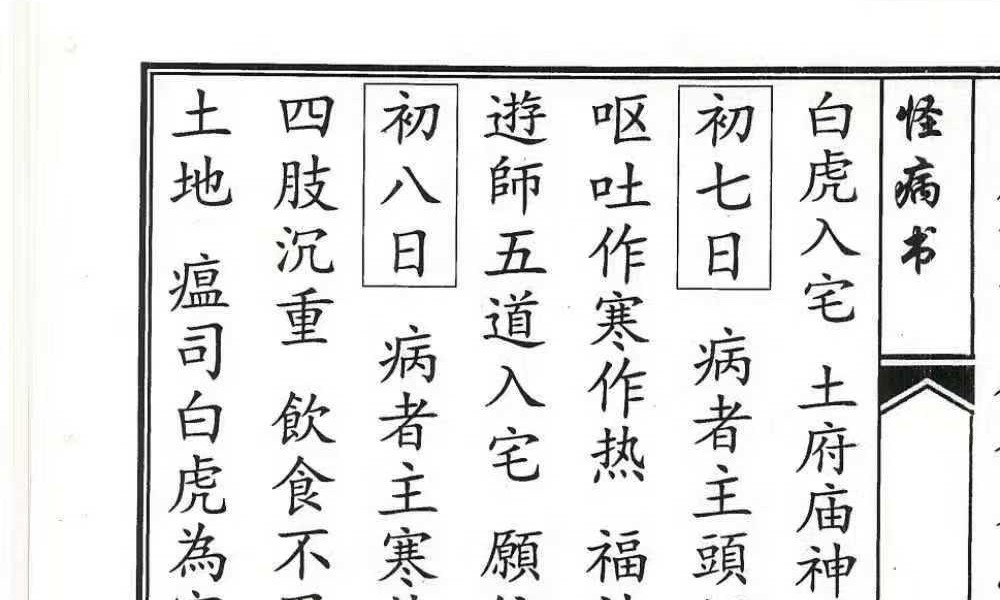 怪病书
白虎入宅 土府庙神
初七日 病者主頭
呕吐作寒作热 福
遊師五道入宅 願
初八日 病者主寒
四肢沉重 飲食不
土地 瘟司白虎為